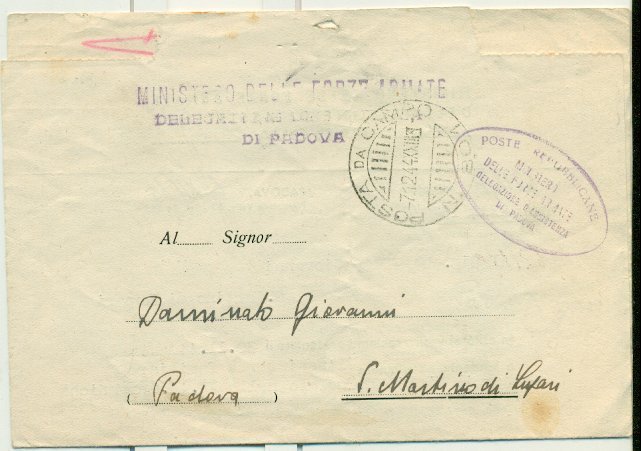 MINISTERO DELLE FORZE ARMATE
DI PADOVA
POSTA DA CAMPO N. 808
-7.12.44.XXIII
POSTE REPUBBLICANE
MINISTERO
DELLE FORZE ARMATE
DELEGAZIONE D'ASSISTENZA
DI PADOVA
Al Signor
Daminato Giovanni
(Padova) S. Martino di Lupari